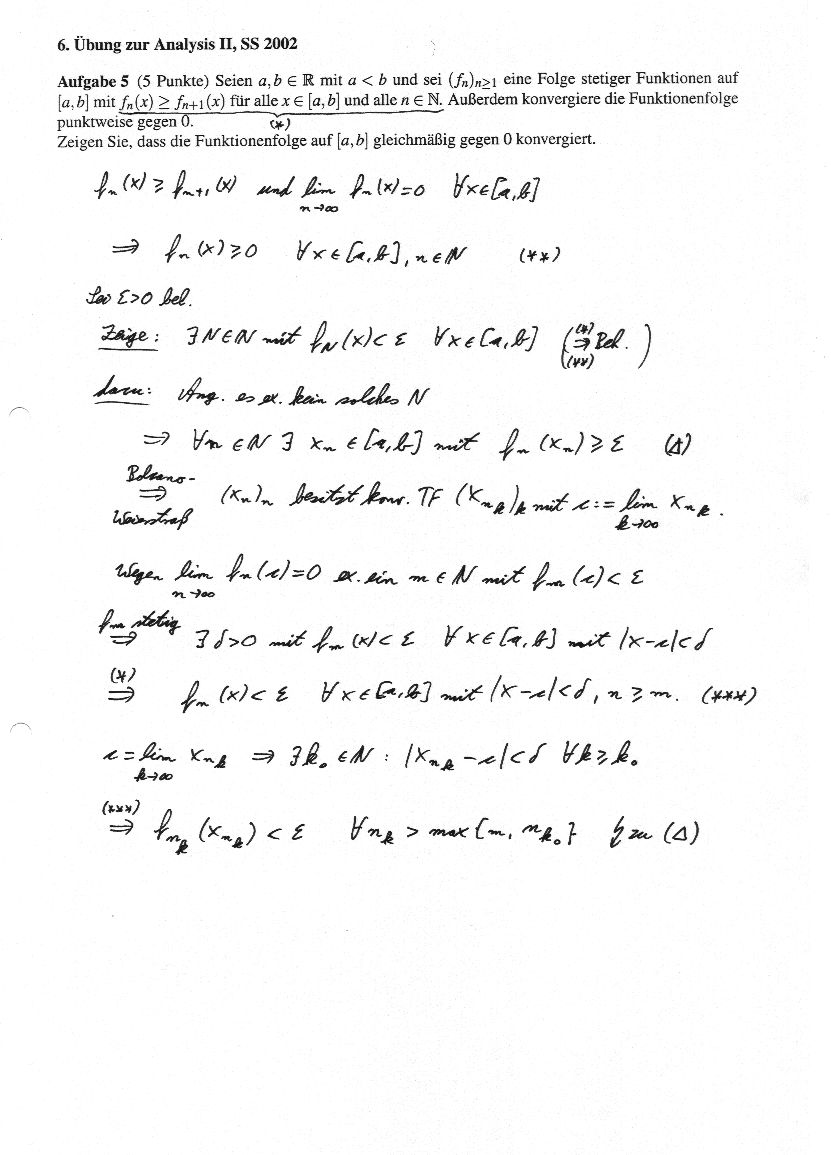 6. Übung zur Analysis II, SS 2002
Aufgabe 5 (5 Punkte) Seien a, b ∈ ℝ mit a < b und sei (fₙ)ₙ≥₁ eine Folge stetiger Funktionen auf
[a,b] mit fₙ(x) ≥ fₙ₊₁(x) für alle x ∈ [a,b] und alle n ∈ ℕ. Außerdem konvergiere die Funktionenfolge
punktweise gegen 0. (*)
Zeigen Sie, dass die Funktionenfolge auf [a,b] gleichmäßig gegen 0 konvergiert.
fₙ(x) ≥ fₙ₊₁(x) und lim_{n→∞} fₙ(x) = 0 ∀x∈[a,b]
⇒ fₙ(x) ≥ 0 ∀x∈[a,b], n∈ℕ (**)
Sei ε>0 bel.
Zeige: ∃N∈ℕ mit f_N(x) < ε ∀x∈[a,b] ( (*) ⇒ (**) Beh. )
dazu: Ang. es ex. kein solches N
⇒ ∀n∈ℕ ∃ xₙ∈[a,b] mit fₙ(xₙ) ≥ ε (Δ)
Bolzano-
⇒ (xₙ)ₙ besitzt konv. TF (x_{n_k})_k mit c := lim_{k→∞} x_{n_k}.
Weierstraß
Wegen lim_{n→∞} fₙ(c) = 0 ex. ein m∈ℕ mit f_m(c) < ε
f_m stetig ⇒ ∃δ>0 mit f_m(x) < ε ∀x∈[a,b] mit |x-c|<δ
(*) ⇒ fₙ(x) < ε ∀x∈[a,b] mit |x-c|<δ, n ≥ m. (***)
c = lim_{k→∞} x_{n_k} ⇒ ∃k₀∈ℕ : |x_{n_k} - c| < δ ∀k ≥ k₀
(***) ⇒ f_{n_k}(x_{n_k}) < ε ∀n_k > max{m, n_{k₀}} ↯ zu (Δ)